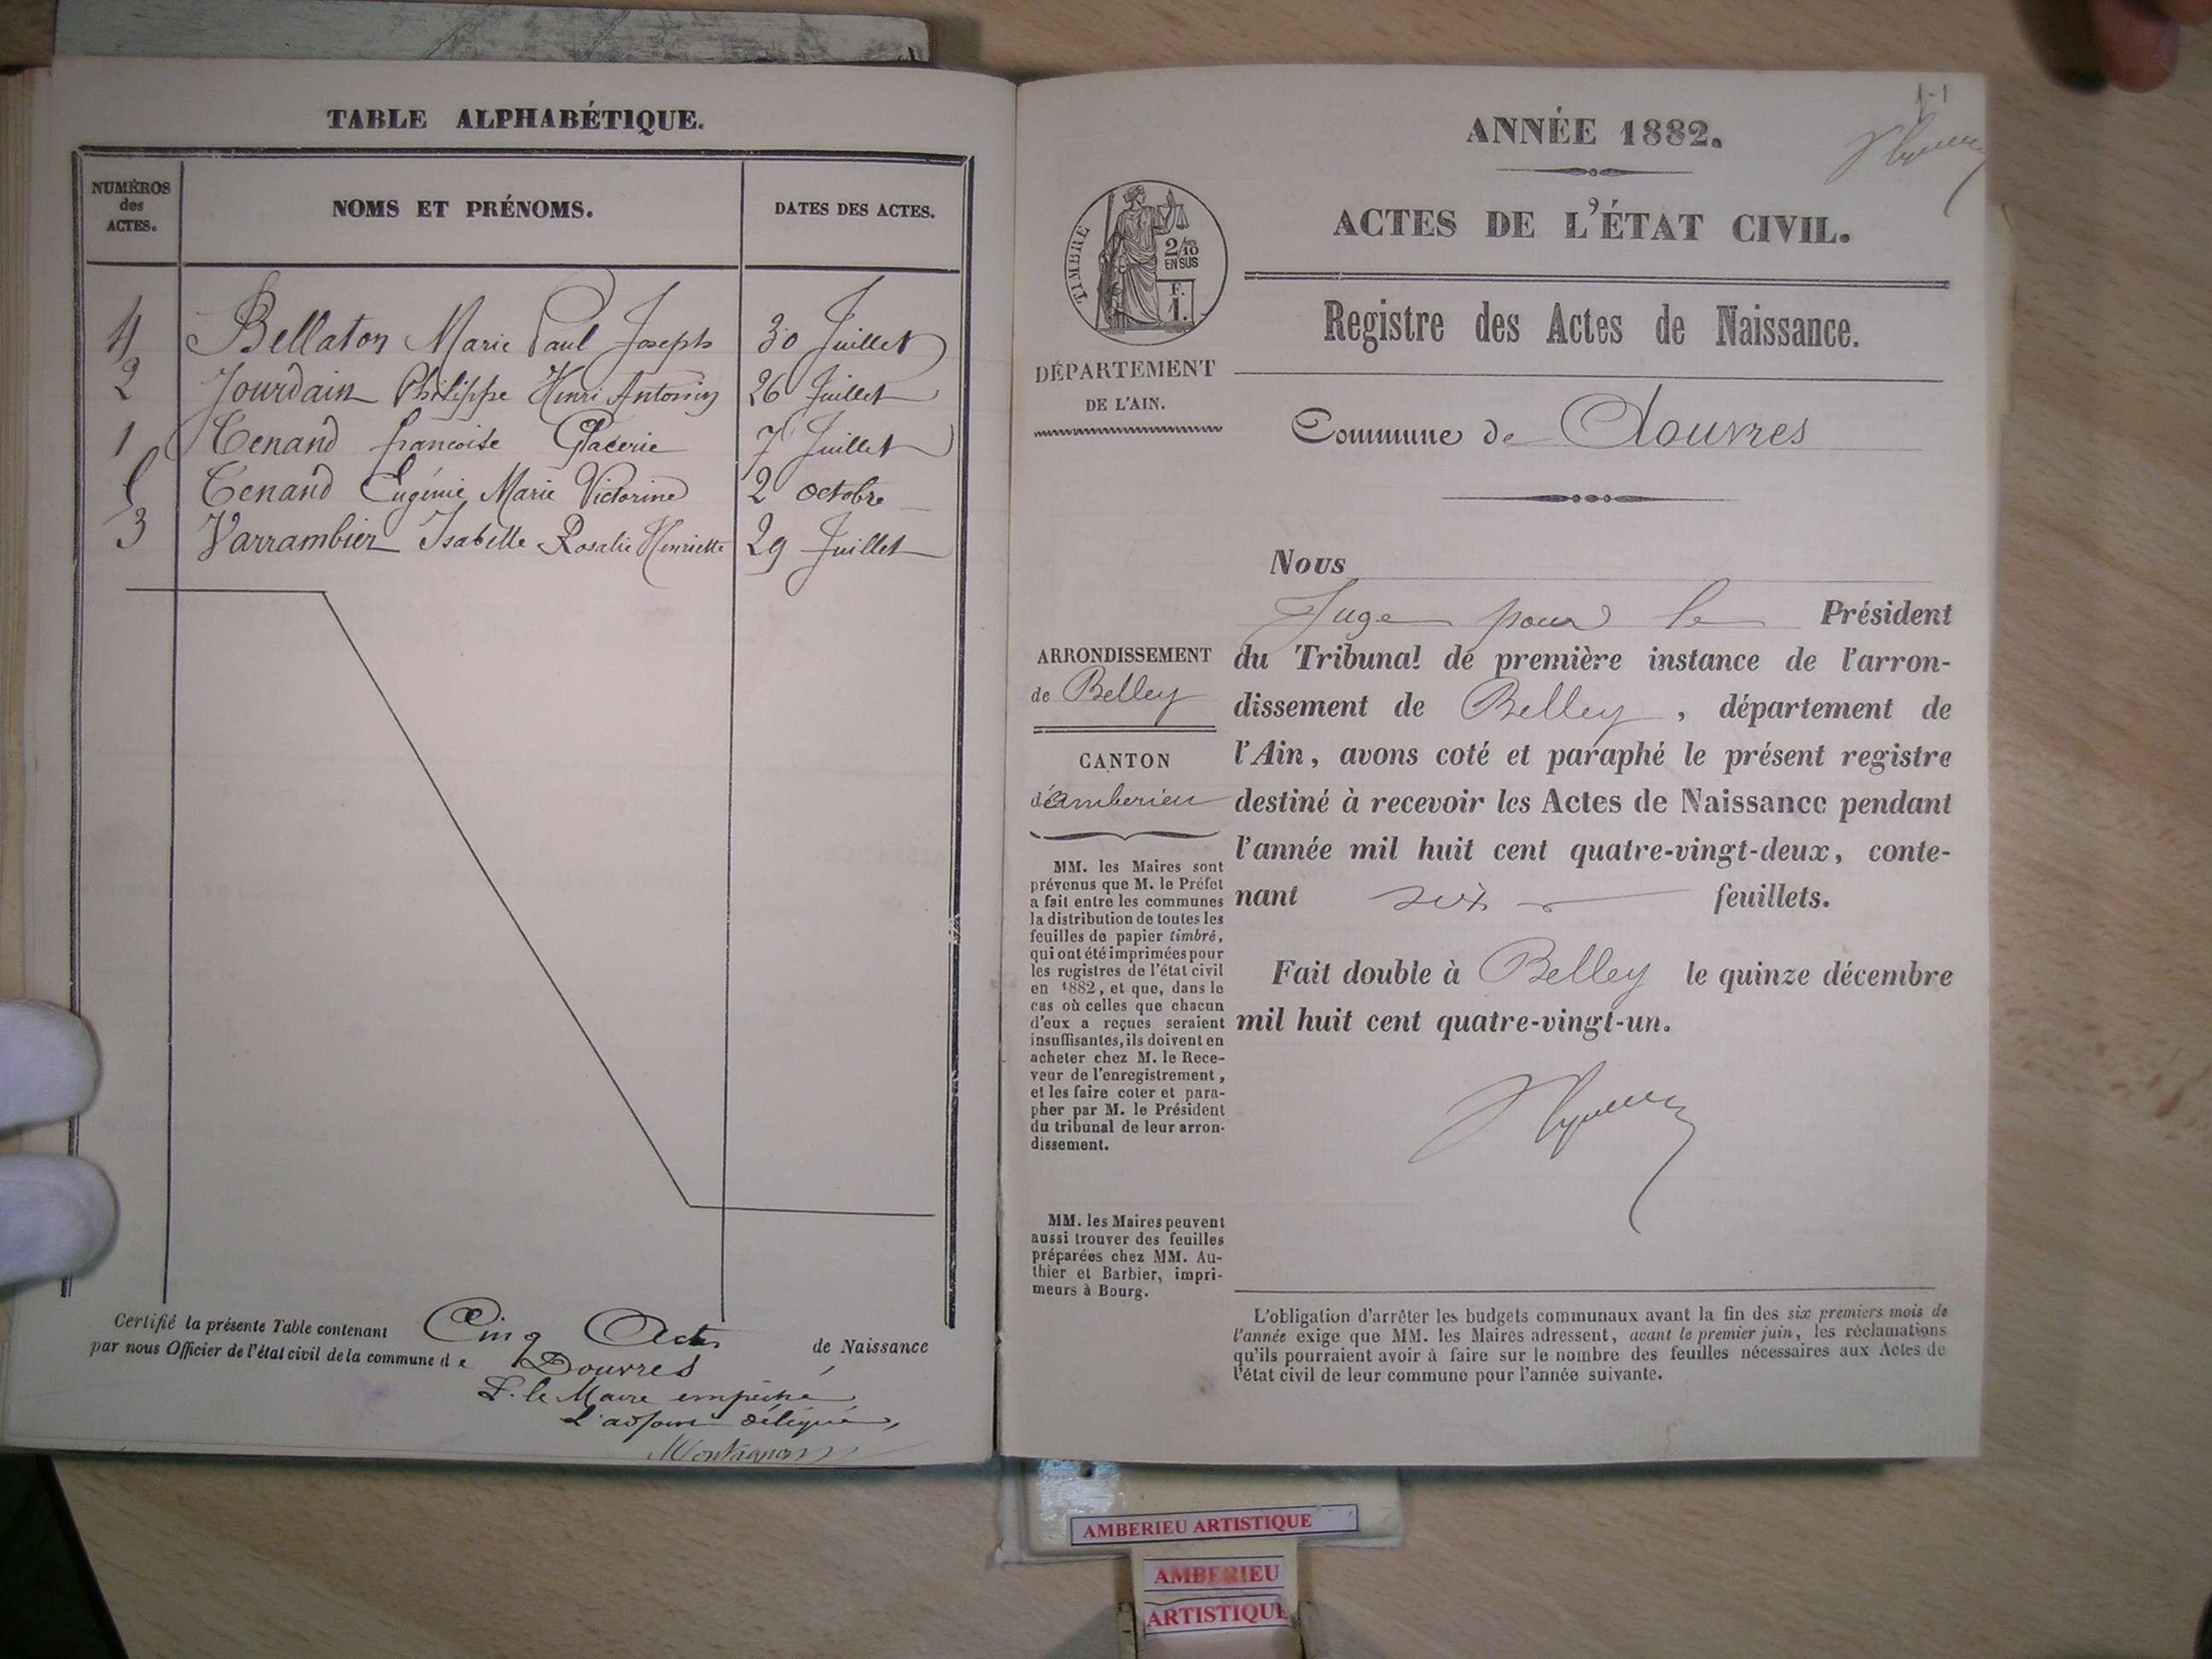 TABLE ALPHABÉTIQUE.
NUMÉROS
des
ACTES.
NOMS ET PRÉNOMS.
DATES DES ACTES.
4 Bellaton Marie Paul Joseph 30 Juillet
2 Jourdain Philippe Henri Antonin 26 Juillet
1 Tenand francoise 7 Juillet
Tenand Eugénie Marie Victorine 2 octobre
3 Varrambier Isabelle Rosalie Henriette 29 Juillet
Certifié la présente Table contenant Cinq Actes de Naissance
par nous Officier de l'état civil de la commune de Douvres
P. le Maire empêché
L'adjoint délégué,
1-1
ANNÉE 1882.
ACTES DE L'ÉTAT CIVIL.
TIMBRE
2/10
EN SUS
F.
1.
Registre des Actes de Naissance.
DÉPARTEMENT
DE L'AIN.
Commune de Douvres
Nous
Juge pour le Président
du Tribunal de première instance de l'arron-
dissement de Belley, département de
l'Ain, avons coté et paraphé le présent registre
destiné à recevoir les Actes de Naissance pendant
l'année mil huit cent quatre-vingt-deux, conte-
nant six feuillets.
Fait double à Belley le quinze décembre
mil huit cent quatre-vingt-un.
ARRONDISSEMENT
de Belley
CANTON
d'Amberieu
MM. les Maires sont
prévenus que M. le Préfet
a fait entre les communes
la distribution de toutes les
feuilles de papier timbré,
qui ont été imprimées pour
les registres de l'état civil
en 1882, et que, dans le
cas où celles que chacun
d'eux a reçues seraient
insuffisantes, ils doivent en
acheter chez M. le Rece-
veur de l'enregistrement,
et les faire coter et para-
pher par M. le Président
du tribunal de leur arron-
dissement.
MM. les Maires peuvent
aussi trouver des feuilles
préparées chez MM. Au-
thier et Barbier, impri-
meurs à Bourg.
L'obligation d'arrêter les budgets communaux avant la fin des six premiers mois de
l'année exige que MM. les Maires adressent, avant le premier juin, les réclamations
qu'ils pourraient avoir à faire sur le nombre des feuilles nécessaires aux Actes de
l'état civil de leur commune pour l'année suivante.
AMBERIEU ARTISTIQUE
AMBERIEU
ARTISTIQUE